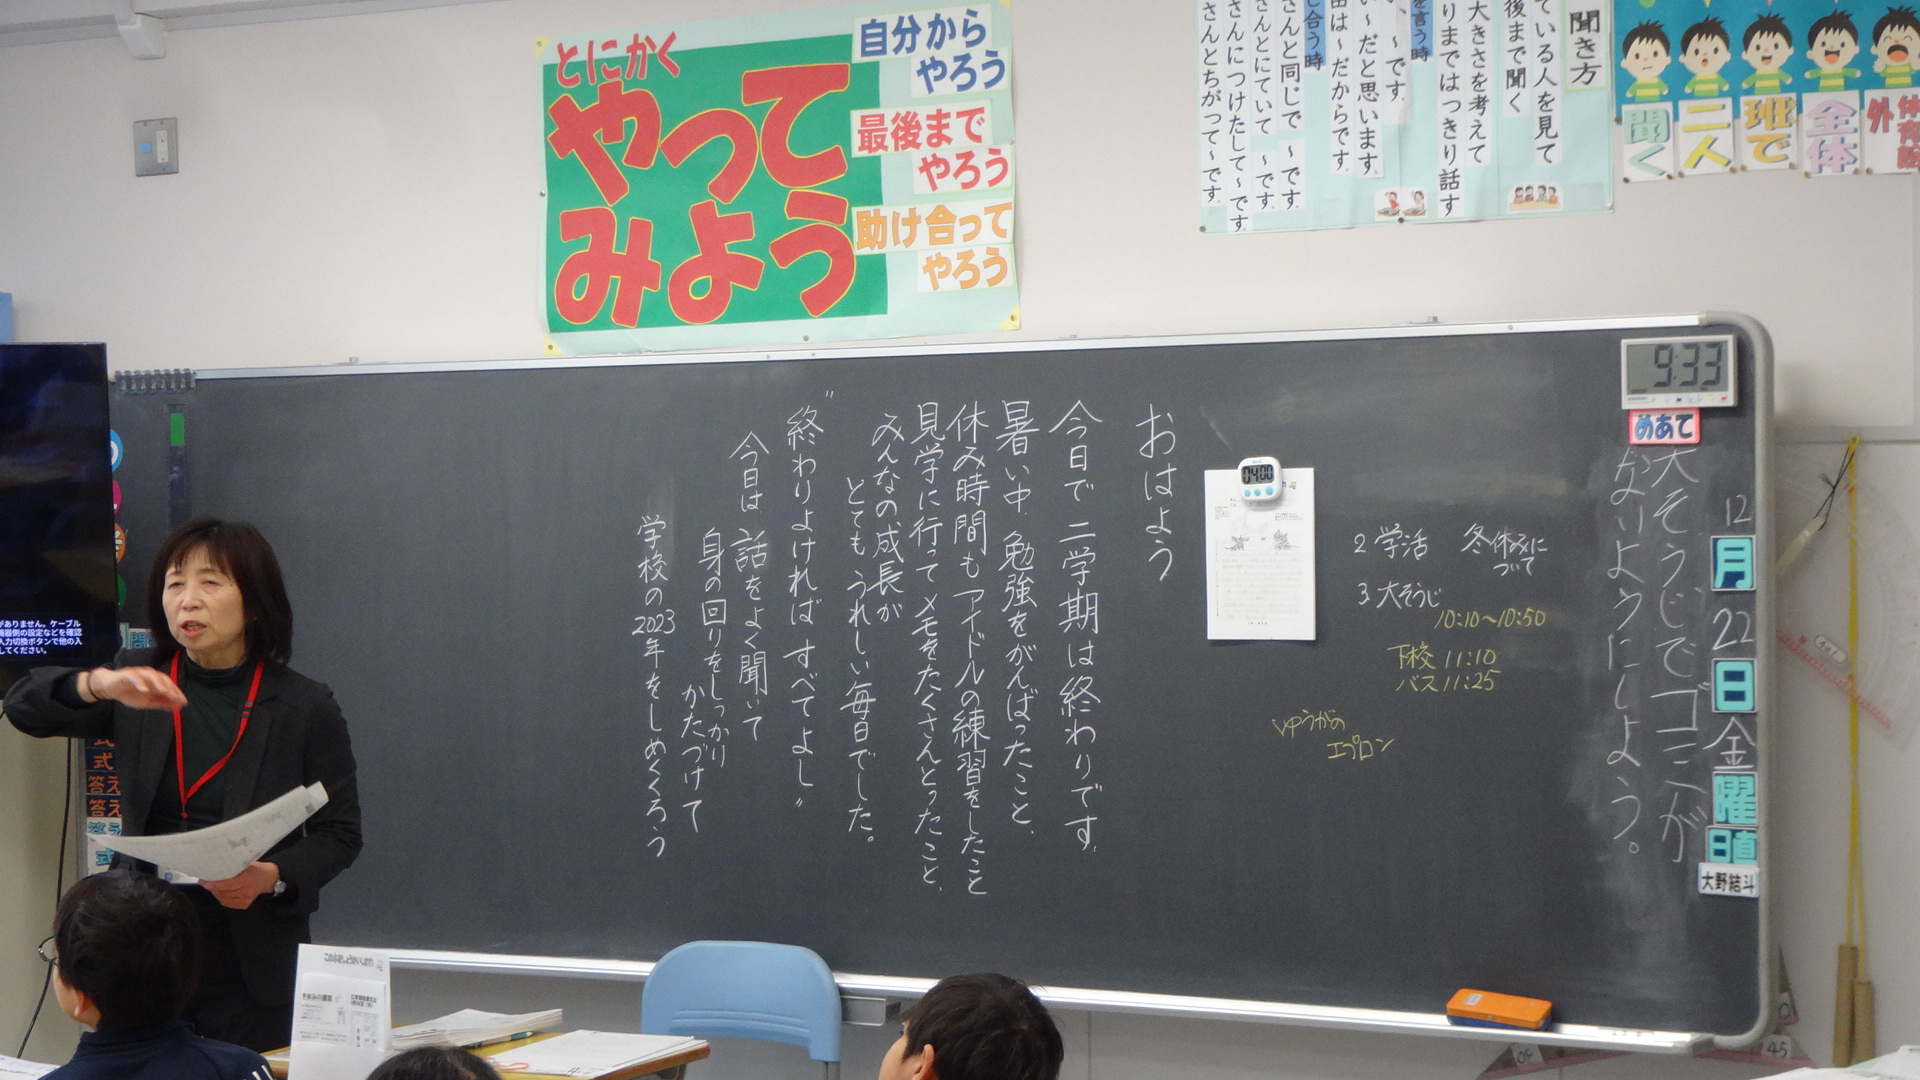 とにかく
やって
みよう
自分から
やろう
最後まで
やろう
助け合って
やろう
聞き方
ている人を見て
後まで聞く
大きさを考えて
りまではっきり話す
を言う時
い、~です。
い~だと思います。
由は~だからです。
し合う時
さんと同じで ~です。
さんとにていて ~です。
さんにつけたして~です。
さんとちがって~です。
聞く
二人
班で
全体
外
9:33
めあて
大そうじでゴミが
ないようにしよう。
12
月
22
日
金
曜
日直
大野結斗
2 学活 冬休みに
ついて
3 大そうじ
10:10~10:50
下校 11:10
バス 11:25
ゆうがの
エプロン
04:00
おはよう
今日で二学期は終わりです。
暑い中、勉強をがんばったこと、
休み時間もアイドルの練習をしたこと
見学に行ってメモをたくさんとったこと、
みんなの成長が
とてもうれしい毎日でした。
"終わりよければすべてよし"
今日は話をよく聞いて
身の回りをしっかり
かたづけて
学校の2023年をしめくくろう
がありません。ケーブル
機器側の設定などを確認
入力切換ボタンで他の入
してください。
式
式
答え
答え
答え
式